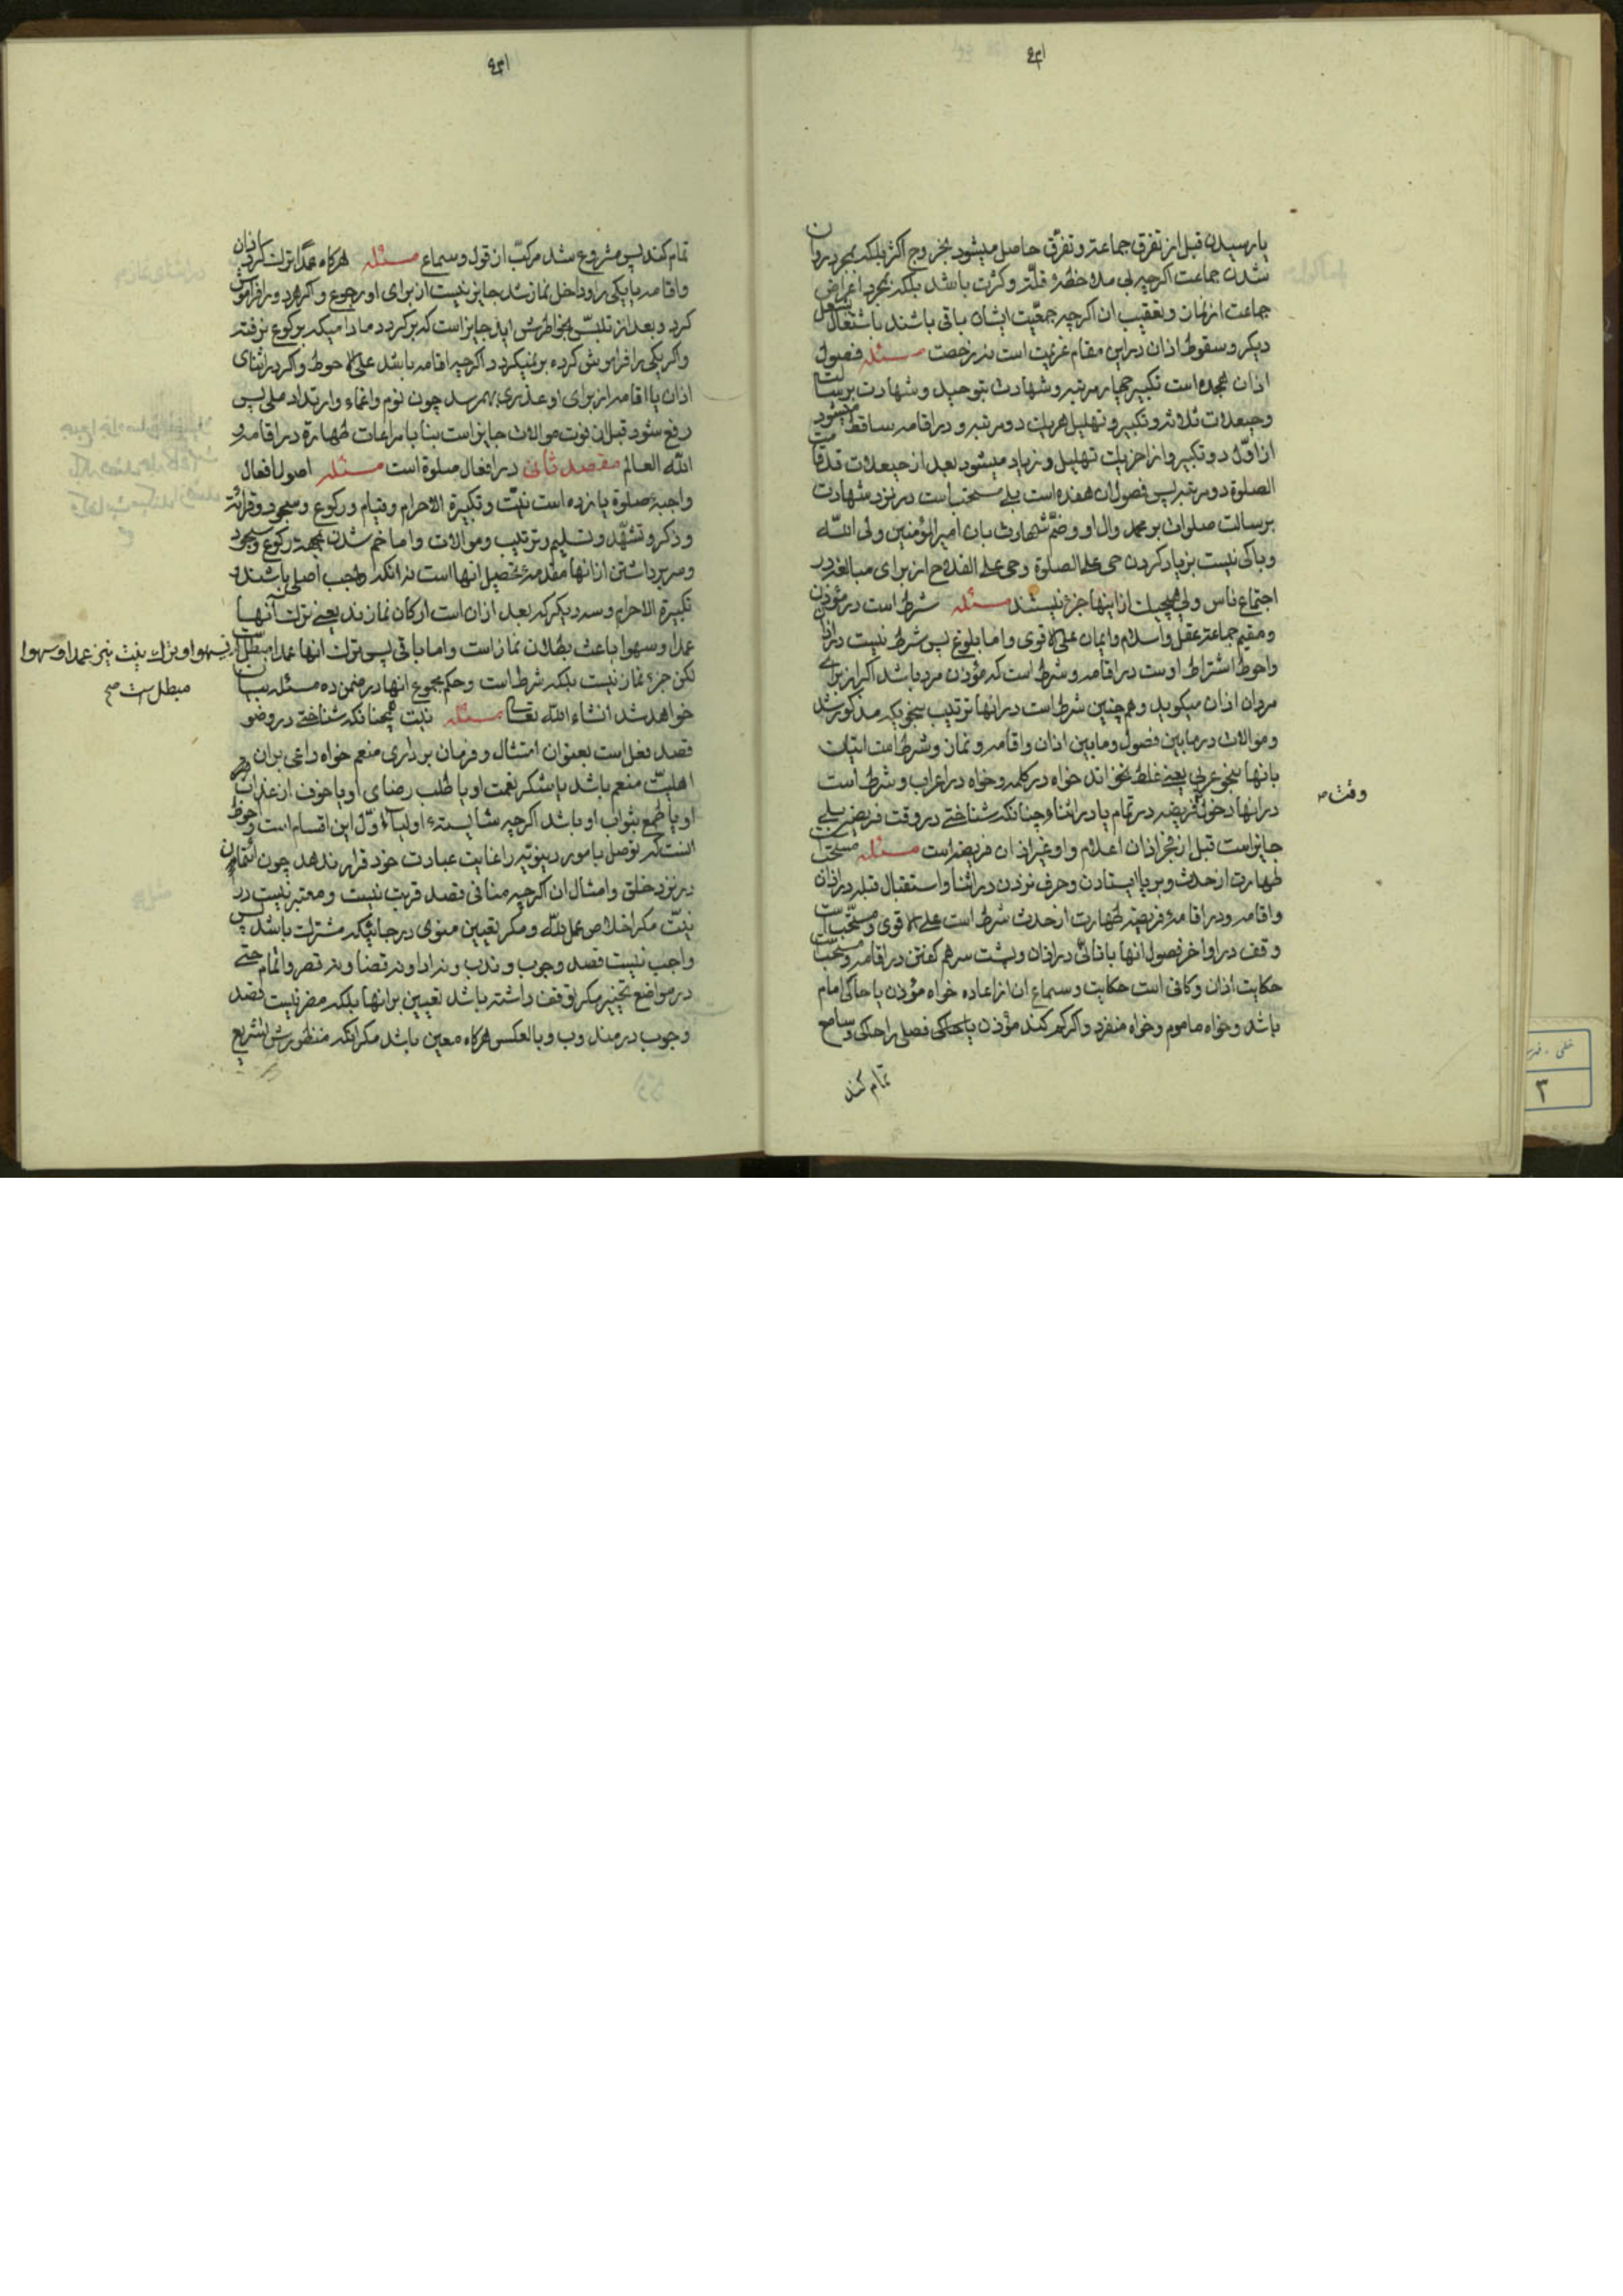 یا رسیدن قبل از تفرق جماعة و تفرّق حاصل میشود بخروج اکثر بلکه بمجرد روان
شدن جماعت اکرچه بی ملاحظهٔ قلّة و کثرت باشد بلکه بمجرد اعراض
جماعت از نماز و تعقیب ان اکرچه جمعیّت ایشان باقی باشند باشتغال بشغل
دیکر و سقوط اذان در این مقام عزیمت است نه رخصت مسئله فصول
اذان هجده است تکبیر چهار مرتبه و شهادت بتوحید و شهادت برسالت
و حیعلات ثلاثه و تکبیر و تهلیل هر یک دو مرتبه و در اقامه ساقط میشود
از اوّل دو تکبیر و از اخر یک تهلیل و زیاد میشود بعد از حیعلات قد قامت
الصلوة دو مرتبه پس فصول ان هفده است بلی مستحب است در نزد شهادت
برسالت صلوات بر محمد و ال او و ضمّ شهادت بان امیرالمؤمنین ولی الله
و باکی نیست بزیاد کردن حی علی الصلوة و حی علی الفلاح از برای مبالغه در
اجتماع ناس ولی هیچیک از اینها جزء نیستند مسئله شرط است در مؤذن
و مقیم جماعة عقل و اسلام و ایمان علی الاقوی و اما بلوغ پس شرط نیست در اذان
و احوط اشتراط اوست در اقامه و شرط است که مؤذن مرد باشد اکر از برای
مردان اذان میکوید و همچنین شرط است در انها ترتیب بنحویکه مذکور شد
و موالات در مابین فصول و مابین اذان و اقامه و نماز و شرط است اتیان
بانها بنحو عربی یعنی غلط نخواند خواه در کلمه و خواه در اعراب و شرط است
در انها دخول فریضه در تمام یا در اثناء چنانکه شناختی در وقت فریضه بلی
وقت صح
جایز است قبل از فجر اذان اعلام و او غیر اذان فریضه است مسئله مستحب
طهارت از حدث و بر پا ایستادن و حرف نزدن در اثنا و استقبال قبله در اذان
و اقامه و در اقامهٔ فریضه طهارت از حدث شرط است علی الاقوی و مستحب است
وقف در اواخر فصول انها با تانّی در اذان و پشت سر هم کفتن در اقامه و مستحب است
حکایت اذان و کافی است حکایت و سماع ان از اعاده خواه مؤذن یا حاکی امام
باشد و خواه ماموم و خواه منفرد و اکر کم کند مؤذن یا حاکی فصلی را حاکی و سامع
تمام کند
تمام کند پس مشروع شد مرکّب از قول و سماع مسئله هرکاه عمدا ترک کرد اذان
و اقامه یا یکی را و داخل نماز شد جایز نیست از برای او رجوع و اکر هر دو را فراموش
کرد و بعد از تلبّس بخاطرش اید جایز است که برکردد مادامیکه برکوع نرفته
و اکر یکی را فراموش کرده بر نمیکردد اکرچه اقامه باشد علی الاحوط و اکر در اثنای
اذان یا اقامه از برای او عذری بهم رسد چون نوم و اغماء و ارتداد ملی پس
رفع شود قبل از فوت موالات جایز است بنا با مراعات طهارة در اقامه و
الله العالم مقصد ثانی در افعال صلوة است مسئله اصول افعال
واجبهٔ صلوة یازده است نیّت و تکبیرة الاحرام و قیام و رکوع و سجود و قرائة
و ذکر و تشهّد و تسلیم و ترتیب و موالات و اما خم شدن بجهة رکوع و سجود
و سر برداشتن از انها مقدمهٔ تحصیل انها است نه انکه واجب اصلی باشند و
تکبیرة الاحرام و سه دیکر که بعد از ان است ارکان نمازند یعنی ترک آنها
عمدا و سهوا باعث بطلان نماز است و اما باقی پس ترک انها عمدا مبطل است نه سهوا و ترک نیت نیز عمدا و سهوا
مبطل است صح
لکن جزء نماز نیست بلکه شرط است و حکم مجموع انها در ضمن ده مسئله بیان
خواهد شد انشاء الله تعالی مسئله نیت همچنانکه شناختی در وضو
قصد فعل است بعنوان امتثال و فرمان برداری منعم خواه داعی بر ان
اهلیّت منعم باشد یا شکر نعمت او یا طلب رضای او یا خوف از عذاب
او یا طمع بثواب او باشد اکرچه شایستهٔ اولیاء اوّل این اقسام است و احوط
انست که توصل بامور دنیویّه را غایت عبادت خود قرار ندهد چون
در نزد خلق و امثال ان اکرچه منافی قصد قربت نیست و معتبر نیست در
نیّت مکر اخلاص عمل لله و مکر تعیین منوی در جائیکه مشترک باشد پس
واجب نیست قصد وجوب و ندب و نه ادا و نه قضا و نه قصر و اتمام حتی
در مواضع تخییر مکر توقف داشته باشد تعیین بر انها بلکه مضر نیست قصد
وجوب در مندوب و بالعکس هرکاه معین باشد مکر انکه منظورش تشریع